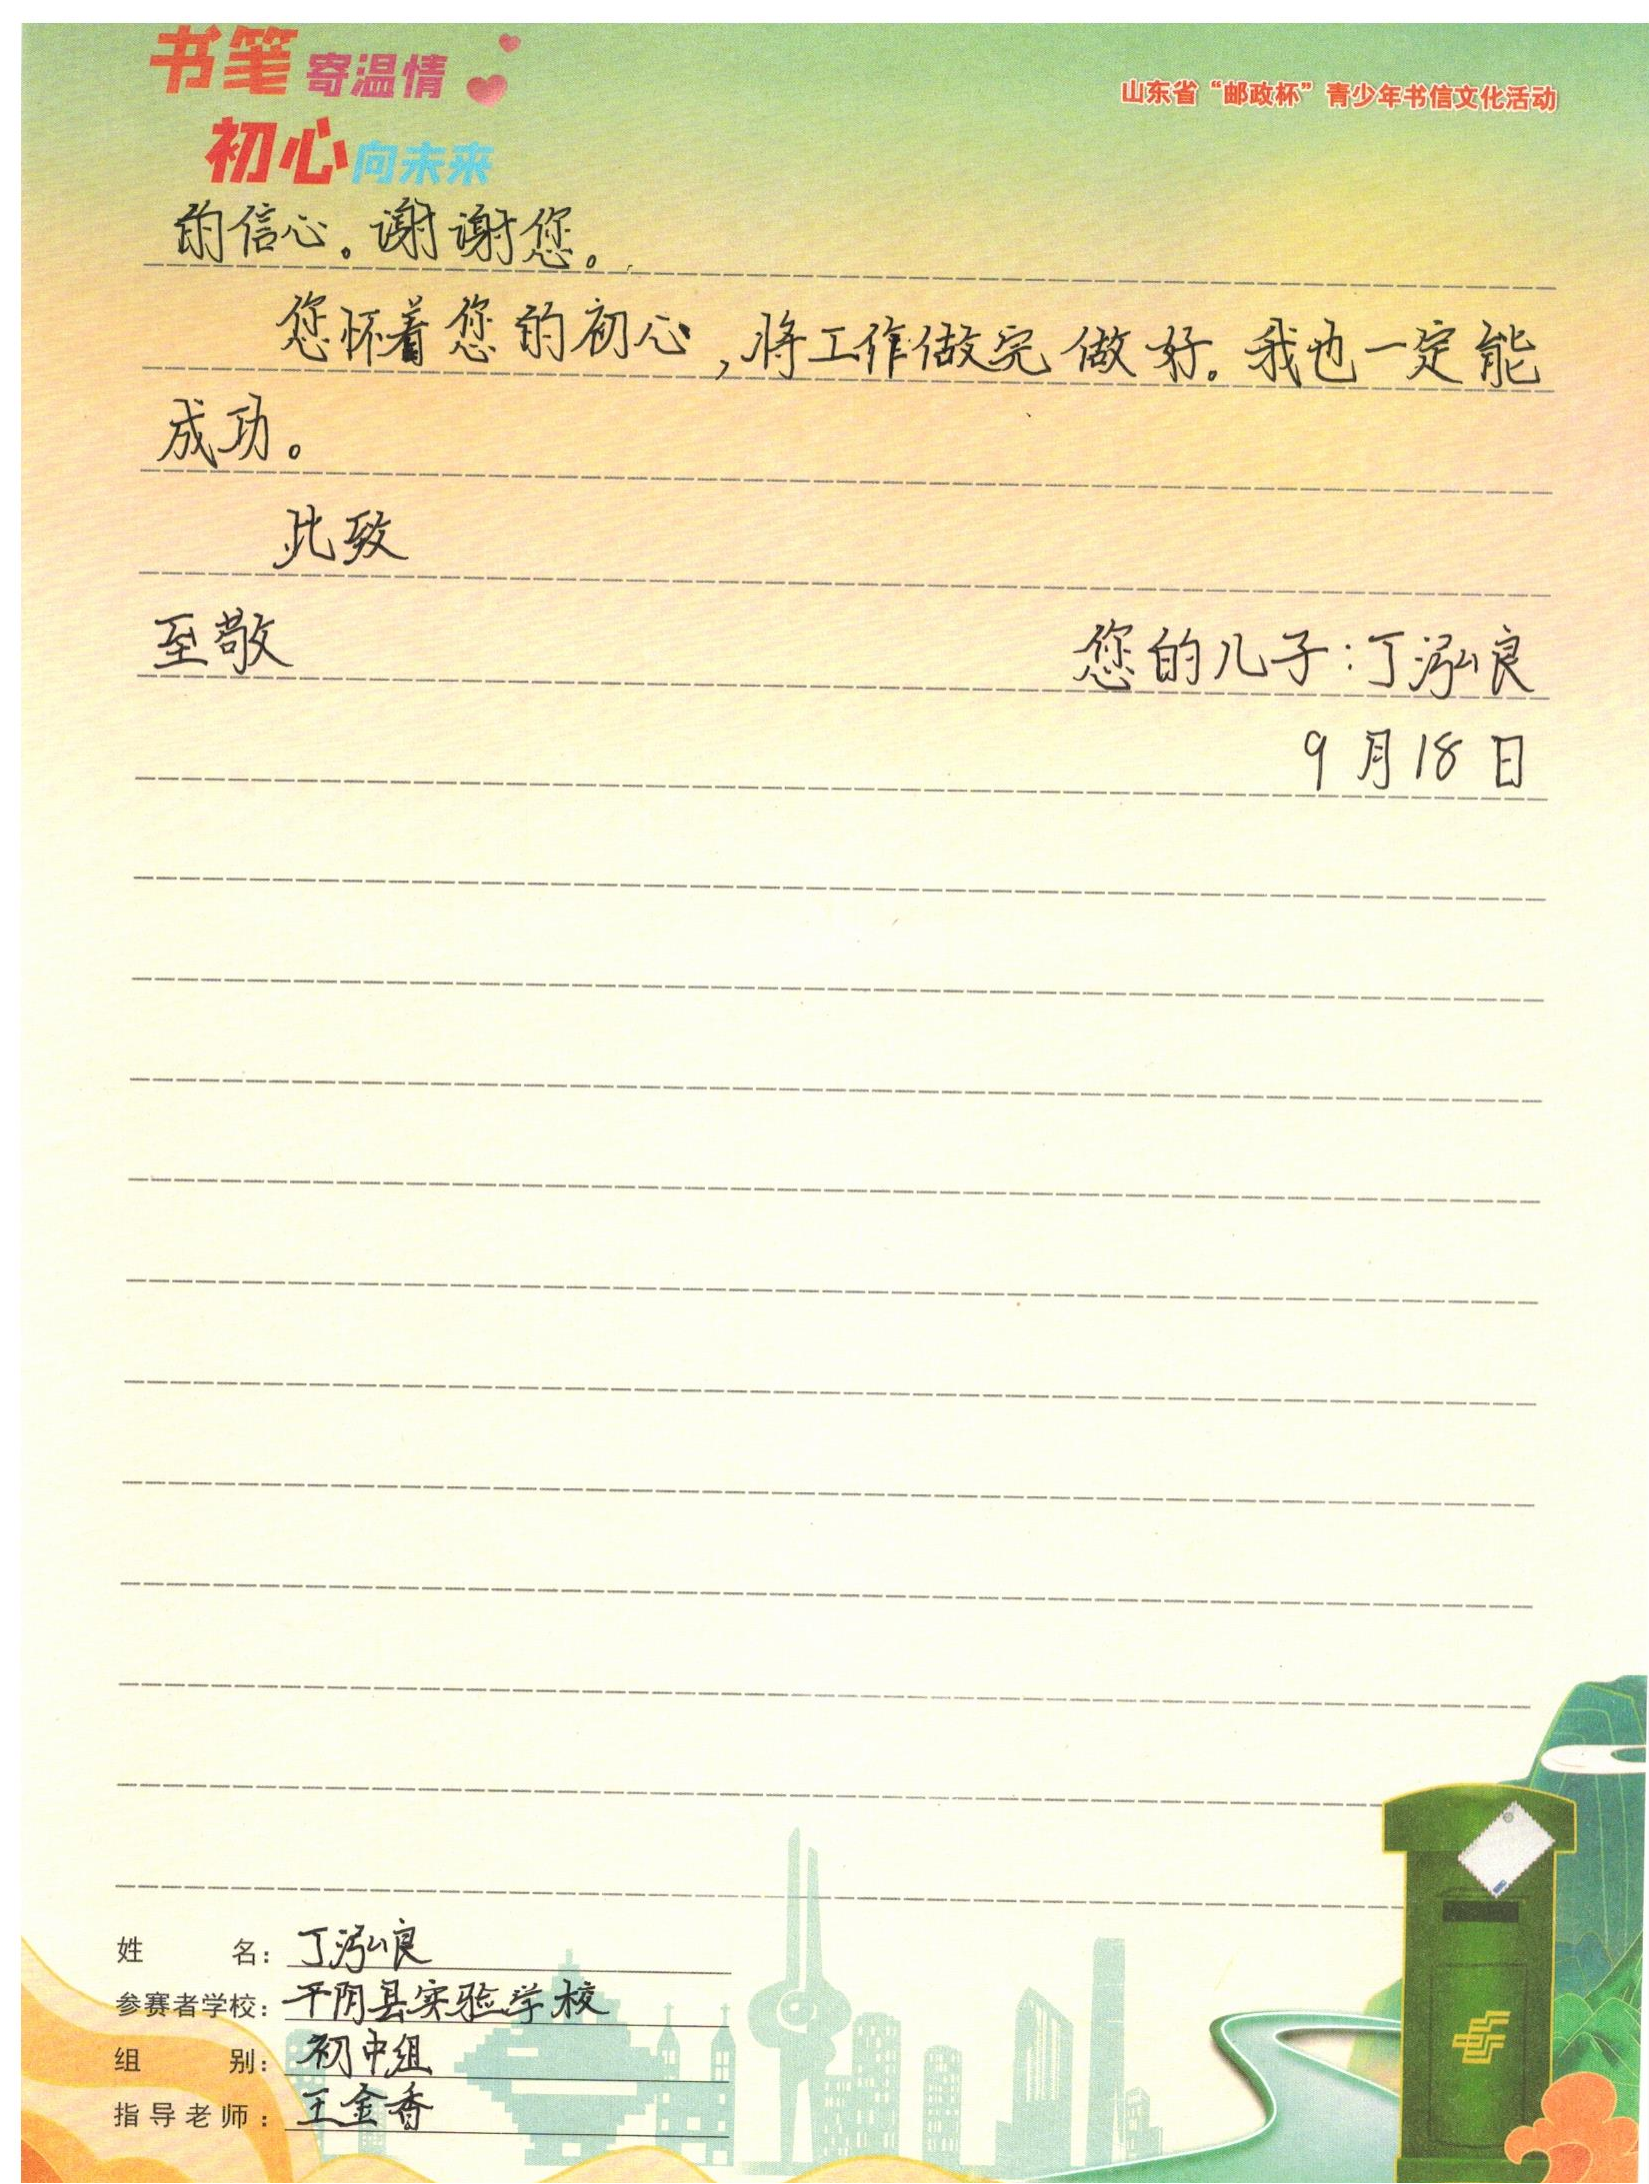 书笔寄温情
初心向未来
山东省“邮政杯”青少年书信文化活动
的信心。谢谢您。
您怀着您的初心,将工作做完做好。我也一定能
成功。
此致
至敬
您的儿子:丁泓良
9月18日
姓名:丁泓良
参赛者学校:平阴县实验学校
组别:初中组
指导老师:王金香